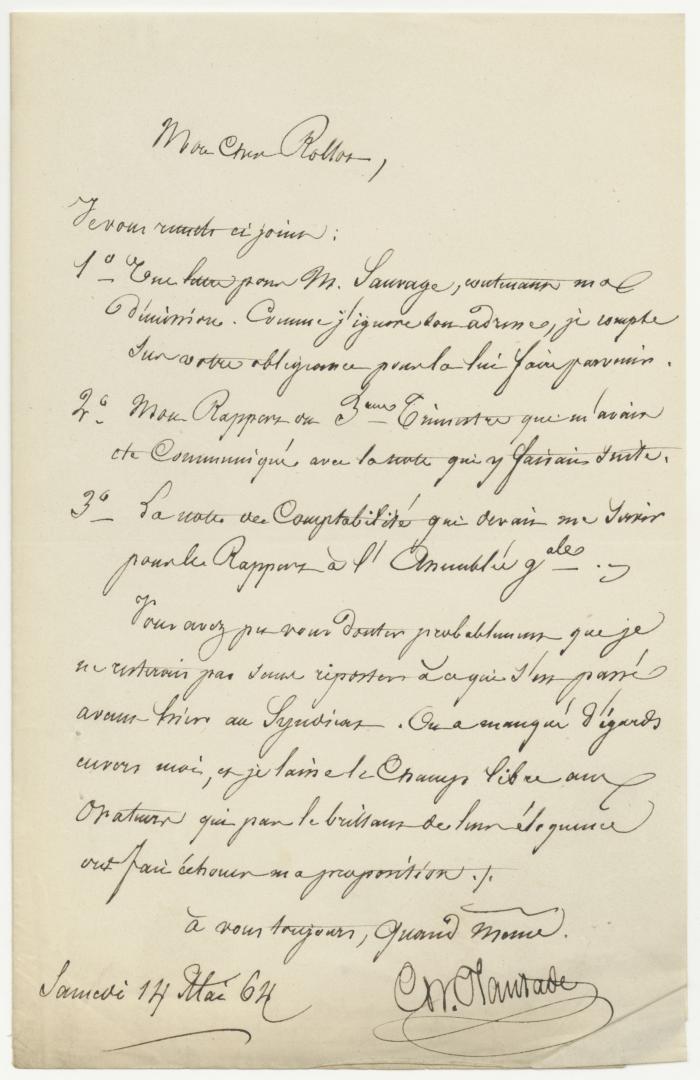 Mon Cher Rollot,
Je vous remets ci joint :
1° Une lettre pour M. Sauvage, contenant ma
Démission. Comme j'ignore son adresse, je compte
sur votre obligeance pour la lui faire parvenir.
2° Mon Rapport du 3eme Trimestre qui m'avait
été Communiqué avec la note qui y faisait suite.
3° La note de Comptabilité qui devait me servir
pour le Rapport à l'Assemblée gale.
Vous avez pu vous douter probablement que je
ne resterais pas sans riposter à ce qui s'est passé
avant hier au Syndicat. On a manqué d'égards
envers moi, et je laisse le Champ libre aux
Orateurs qui par le brillant de leur éloquence
ont fait échouer ma proposition ./.
à vous toujours, Quand Même.
Samedi 14 Mai 64